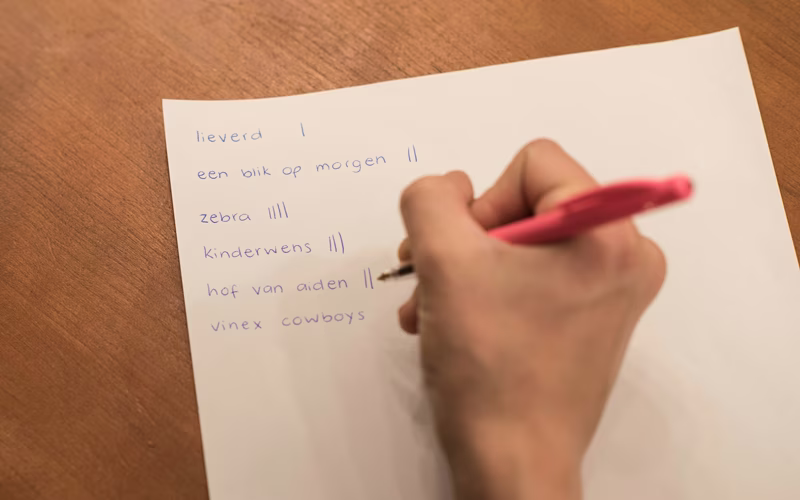 lieverd |
een blik op morgen ||
zebra ||||
kinderwens |||
hof van aiden ||
vinex cowboys